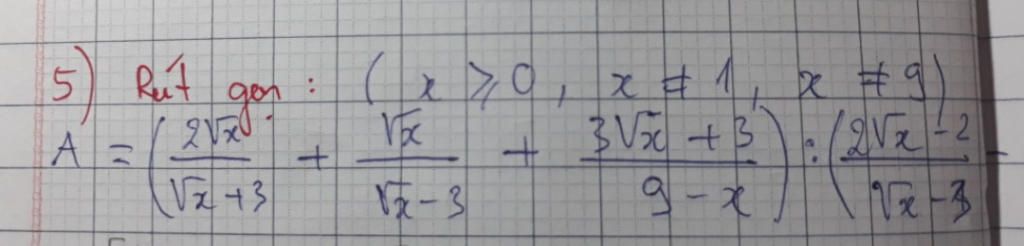 5) Rút gọn: ( x ⩾ 0, x ≠ 1, x ≠ 9)
A = (2√x/(√x+3) + √x/(√x-3) + (3√x+3)/(9-x)) : ((2√x-2)/(√x-3) -